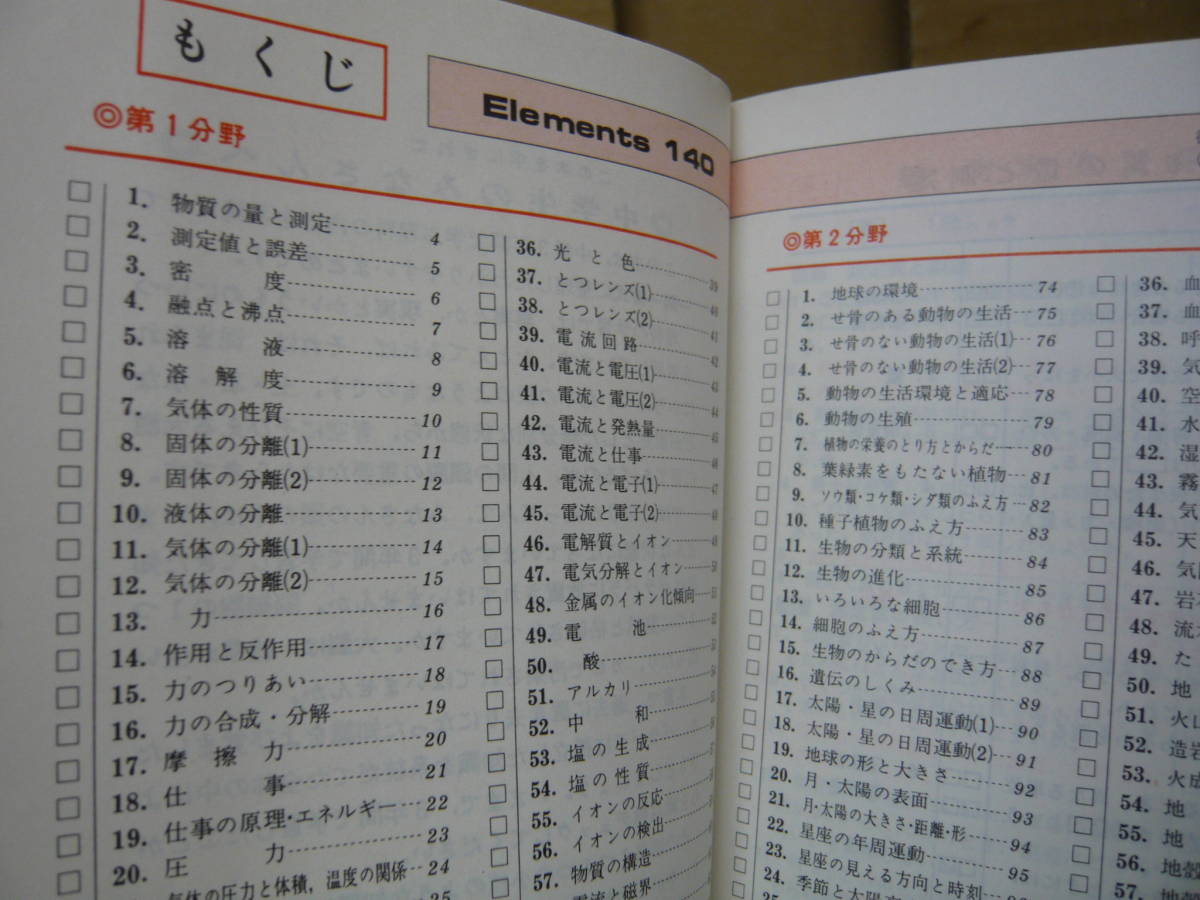 もくじ
Elements 140
◎第1分野
□ 1. 物質の量と測定 4
□ 2. 測定値と誤差 5
□ 3. 密度 6
□ 4. 融点と沸点 7
□ 5. 溶液 8
□ 6. 溶解度 9
□ 7. 気体の性質 10
□ 8. 固体の分離(1) 11
□ 9. 固体の分離(2) 12
□ 10. 液体の分離 13
□ 11. 気体の分離(1) 14
□ 12. 気体の分離(2) 15
□ 13. 力 16
□ 14. 作用と反作用 17
□ 15. 力のつりあい 18
□ 16. 力の合成・分解 19
□ 17. 摩擦力 20
□ 18. 仕事 21
□ 19. 仕事の原理・エネルギー 22
□ 20. 圧力 23
気体の圧力と体積,温度の関係 24
25
□ 36. 光と色 39
□ 37. とつレンズ(1) 40
□ 38. とつレンズ(2) 41
□ 39. 電流回路 42
□ 40. 電流と電圧(1) 43
□ 41. 電流と電圧(2) 44
□ 42. 電流と発熱量 45
□ 43. 電流と仕事 46
□ 44. 電流と電子(1) 47
□ 45. 電流と電子(2) 48
□ 46. 電解質とイオン 49
□ 47. 電気分解とイオン 50
□ 48. 金属のイオン化傾向
□ 49. 電池 52
□ 50. 酸 53
□ 51. アルカリ
□ 52. 中和
□ 53. 塩の生成
□ 54. 塩の性質
□ 55. イオンの反応
□ 56. イオンの検出
□ 57. 物質の構造
電流と磁界
◎第2分野
□ 1. 地球の環境 74
□ 2. せ骨のある動物の生活 75
□ 3. せ骨のない動物の生活(1) 76
□ 4. せ骨のない動物の生活(2) 77
□ 5. 動物の生活環境と適応 78
□ 6. 動物の生殖 79
□ 7. 植物の栄養のとり方とからだ 80
□ 8. 葉緑素をもたない植物 81
□ 9. ソウ類・コケ類・シダ類のふえ方 82
□ 10. 種子植物のふえ方 83
□ 11. 生物の分類と系統 84
□ 12. 生物の進化 85
□ 13. いろいろな細胞 86
□ 14. 細胞のふえ方 87
□ 15. 生物のからだのでき方 88
□ 16. 遺伝のしくみ 89
□ 17. 太陽・星の日周運動(1) 90
□ 18. 太陽・星の日周運動(2) 91
□ 19. 地球の形と大きさ 92
□ 20. 月・太陽の表面 93
□ 21. 月・太陽の大きさ・距離・形 94
□ 22. 星座の年周運動 95
□ 23. 星座の見える方向と時刻
□ 24. 季節と太陽
□ 36. 血
□ 37. 血
□ 38. 呼
□ 39. 気
□ 40. 空
□ 41. 水
□ 42. 湿
□ 43. 霧
□ 44. 気
□ 45. 天
□ 46. 気
□ 47. 岩
□ 48. 流
□ 49. た
□ 50. 地
□ 51. 火
□ 52. 造岩
□ 53. 火成
□ 54. 地
□ 55. 地
□ 56. 地殻
□ 57. 地殻